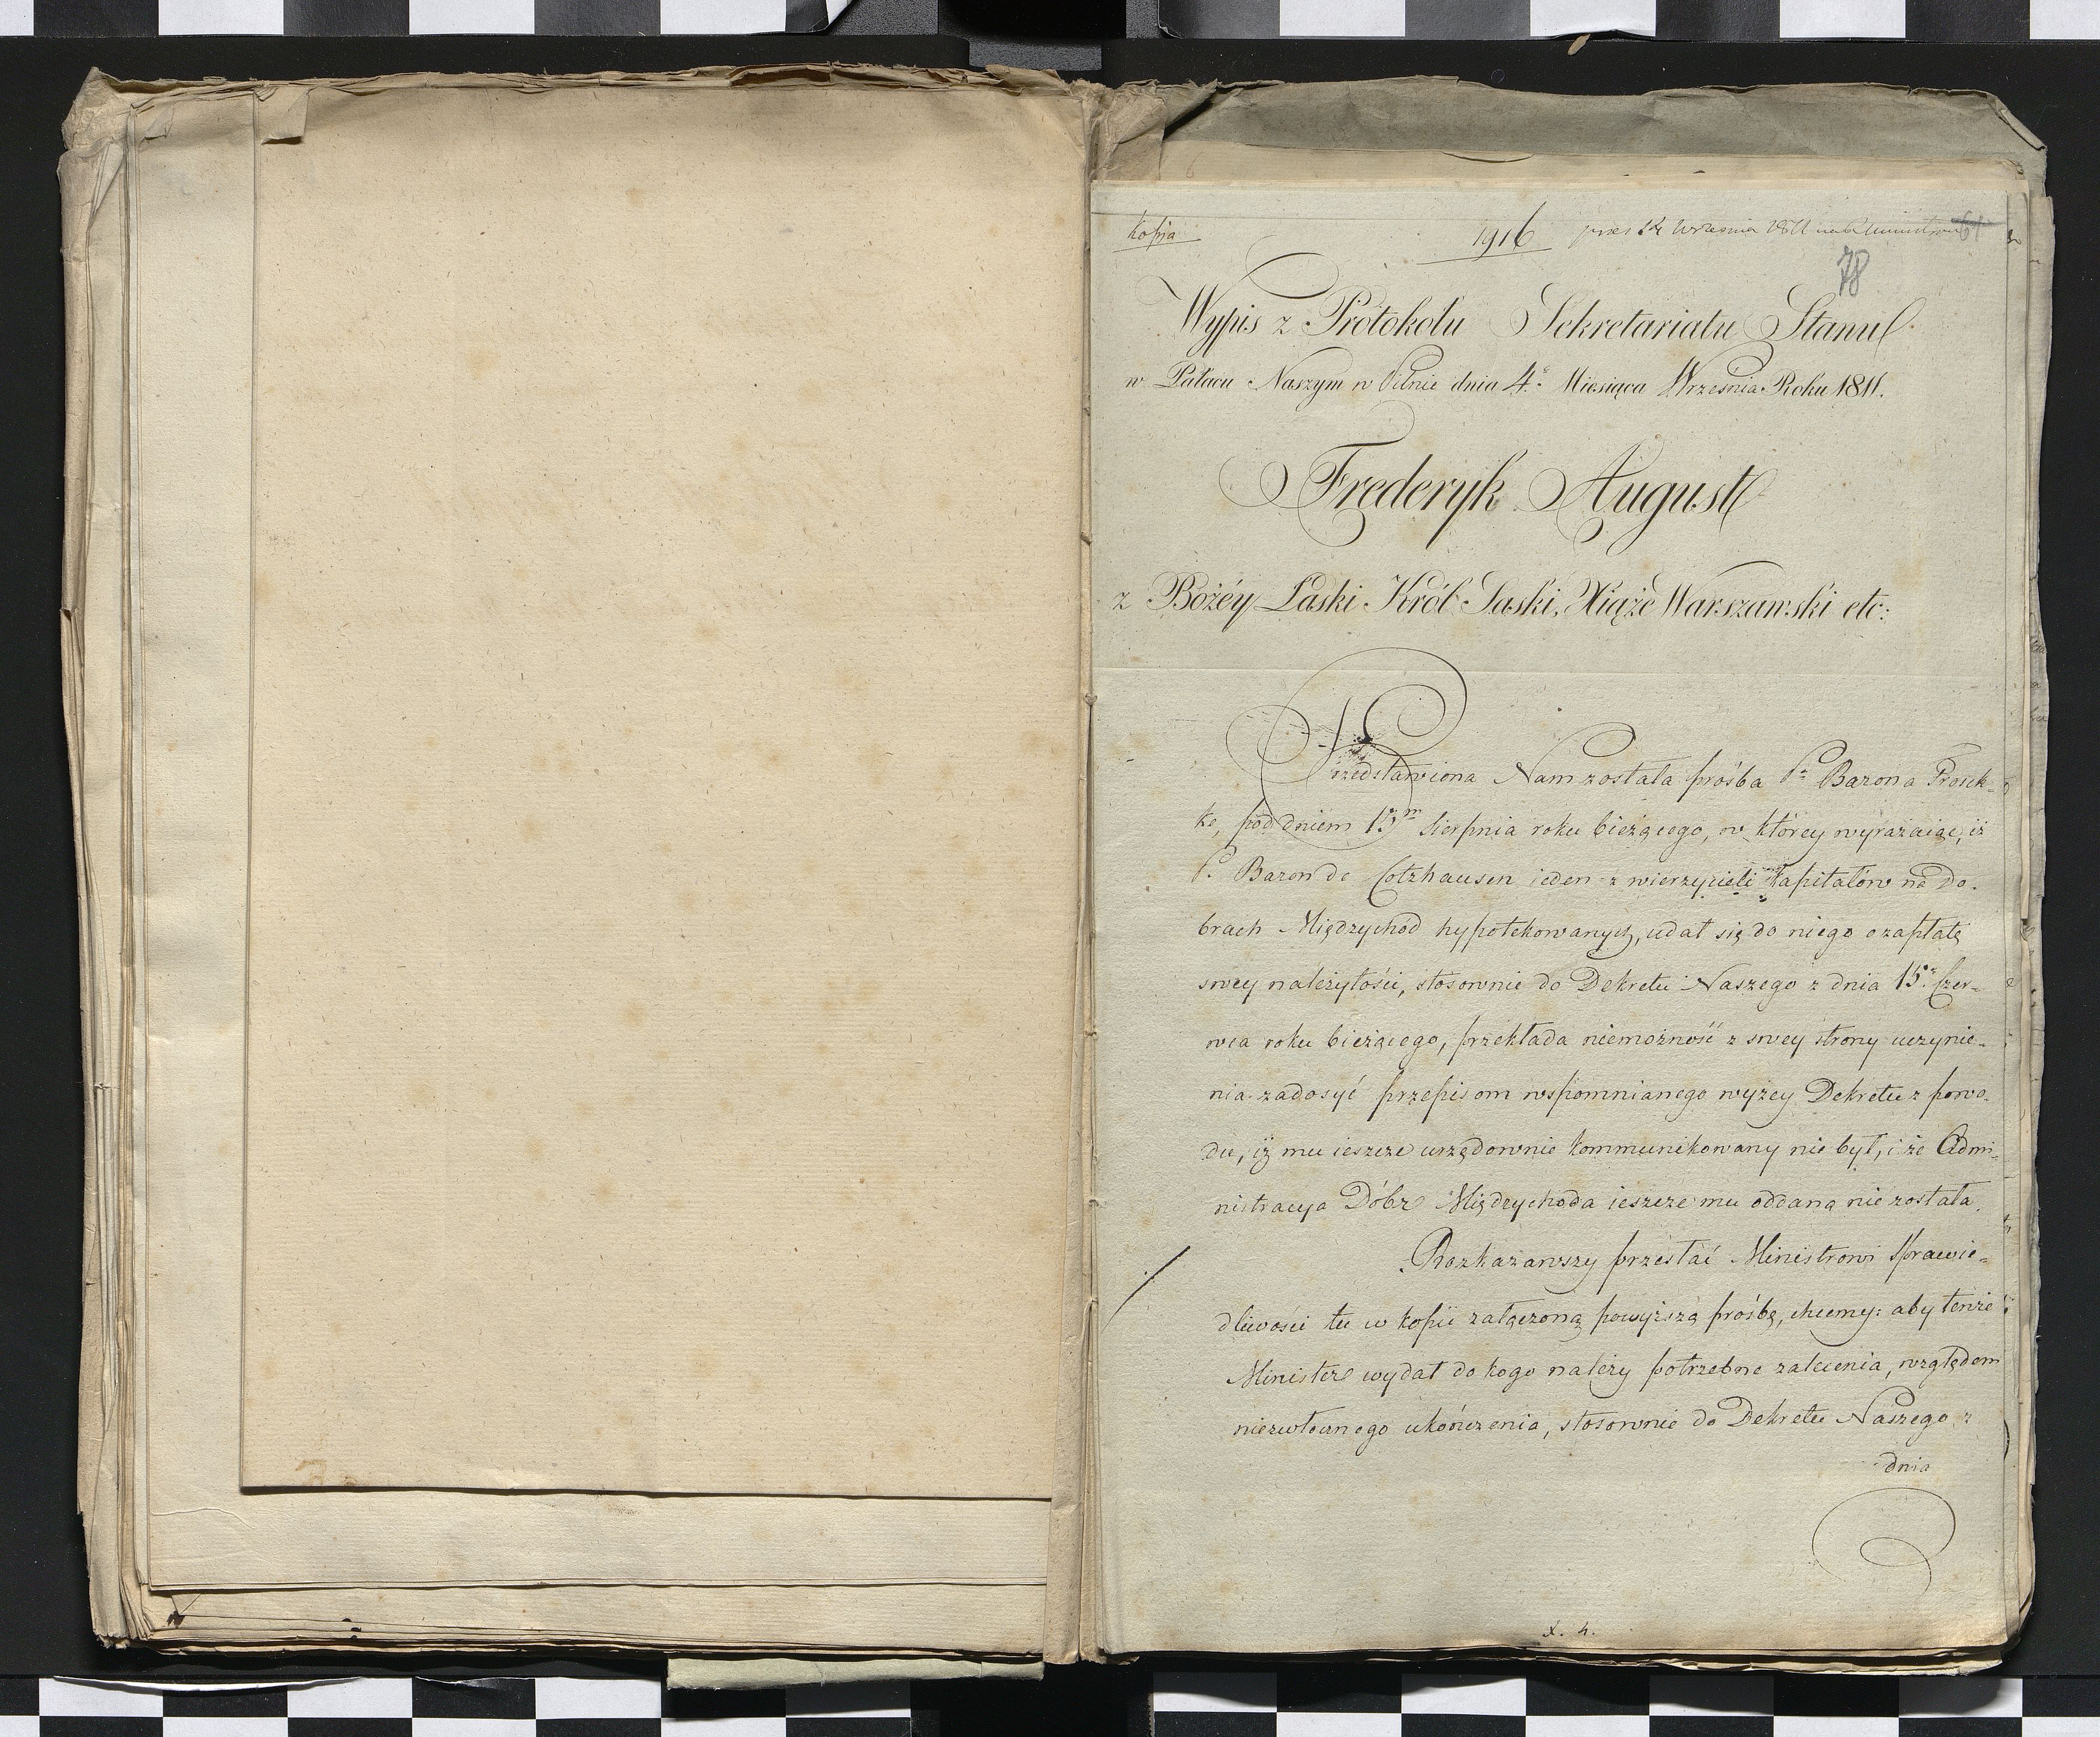 Kopia
1916 12 Września 1811
78
Wypis z Protokołu Sekretariatu Stanu
w Pałacu Naszym w Pilnie dnia 4. Miesiąca Września Roku 1811.
Frederyk August
z Bożéy Łaski Król Saski, Xiąże Warszawski etc:
Przedstawiona Nam została prośba Pa Barona Prosek-
ke, pod dniem 15m Sierpnia roku bieżącego, w którey wyrażaiąc, iż
P. Baron de Cotzhausen ieden z wierzycieli kapitałów na Do-
brach Międzychod hypotekowanych, udał się do niego o zapłatę
swey należytości, stosownie do Dekretu Naszego z dnia 15. Czer-
wca roku bieżącego, przekłada niemożność z swey strony uczynie-
nia zadosyć przepisom wspomnianego wyżey Dekretu z powo-
du, iż mu ieszcze urzędownie kommunikowany nie był, i że Admi-
nistracya Dóbr Międzychoda ieszcze mu oddaną nie została.
Rozkazawszy przesłać Ministrowi Sprawie-
dliwości tu w kopii załączoną powyższą prośbę, chcemy: aby tenże
Minister wydał do kogo należy potrzebne zalecenia, względem
niezwłocznego ukończenia, stosownie do Dekretu Naszego z
dnia